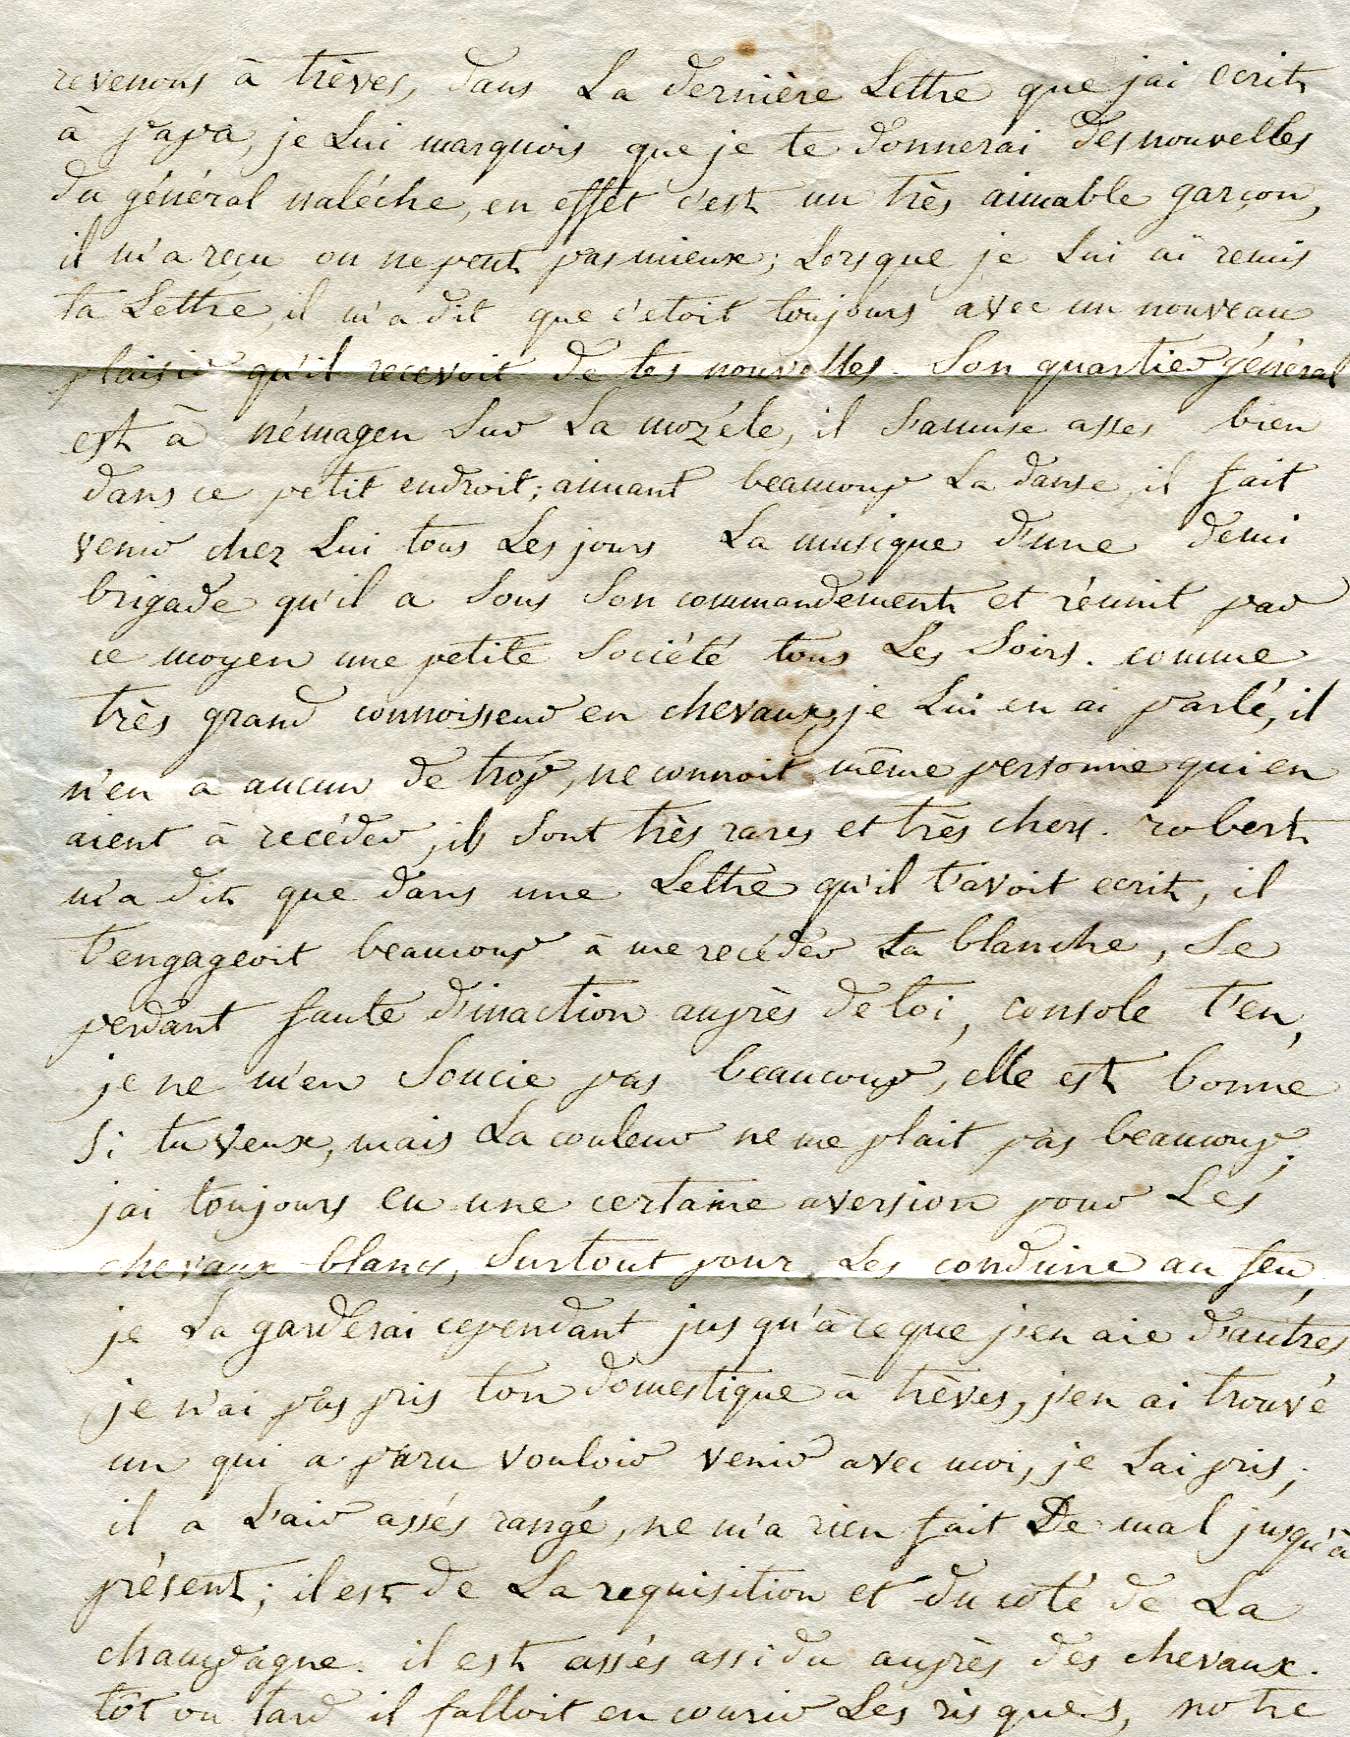 revenons à trèves, dans La dernière Lettre que jai ecrit
à papa, je Lui marquois que je te donnerai des nouvelles
du général naléche, en effet c'est un très aimable garçon,
il m'a reçu on ne peut pas mieux; Lorsque je Lui ai remis
ta Lettre, il m'a dit que c'etoit toujours avec un nouveau
plaisir qu'il recevoit de tes nouvelles. Son quartier général
est à némagen Sur La mozéle, il s'amuse asses bien
dans ce petit endroit; aimant beaucoup La danse, il fait
venir chez Lui tous Les jours La musique d'une demi
brigade qu'il a Sous Son commandement et réunit par
ce moyen une petite Société tous Les Soirs. comme
très grand connoisseur en chevaux, je Lui en ai parlé, il
n'en a aucun de trop, ne connoit même personne qui en
aient à recéder, ils Sont très rares et très chers. robert
m'a dit que dans une Lettre qu'il t'avoit ecrit, il
t'engageoit beaucoup à me recéder ta blanche, Se
perdant faute d'inaction auprès de toi, console t'en,
je ne m'en Soucie pas beaucoup, elle est bonne
Si tu veux, mais La couleur ne me plait pas beaucoup;
jai toujours eu une certaine aversion pour Les
chevaux blancs, Surtout pour Les conduire au feu,
je La garderai cependant jusqu'à ce que j'en aie d'autres
je n'ai pas pris ton domestique à trèves, j'en ai trouvé
un qui a paru vouloir venir avec moi, je L'ai pris;
il a L'air assés rangé, ne m'a rien fait De mal jusqu'à
présent; il est de La requisition et du coté de La
champagne. il est assés assidu auprès des chevaux.
tôt ou tard il falloit en courir Les risques, notre